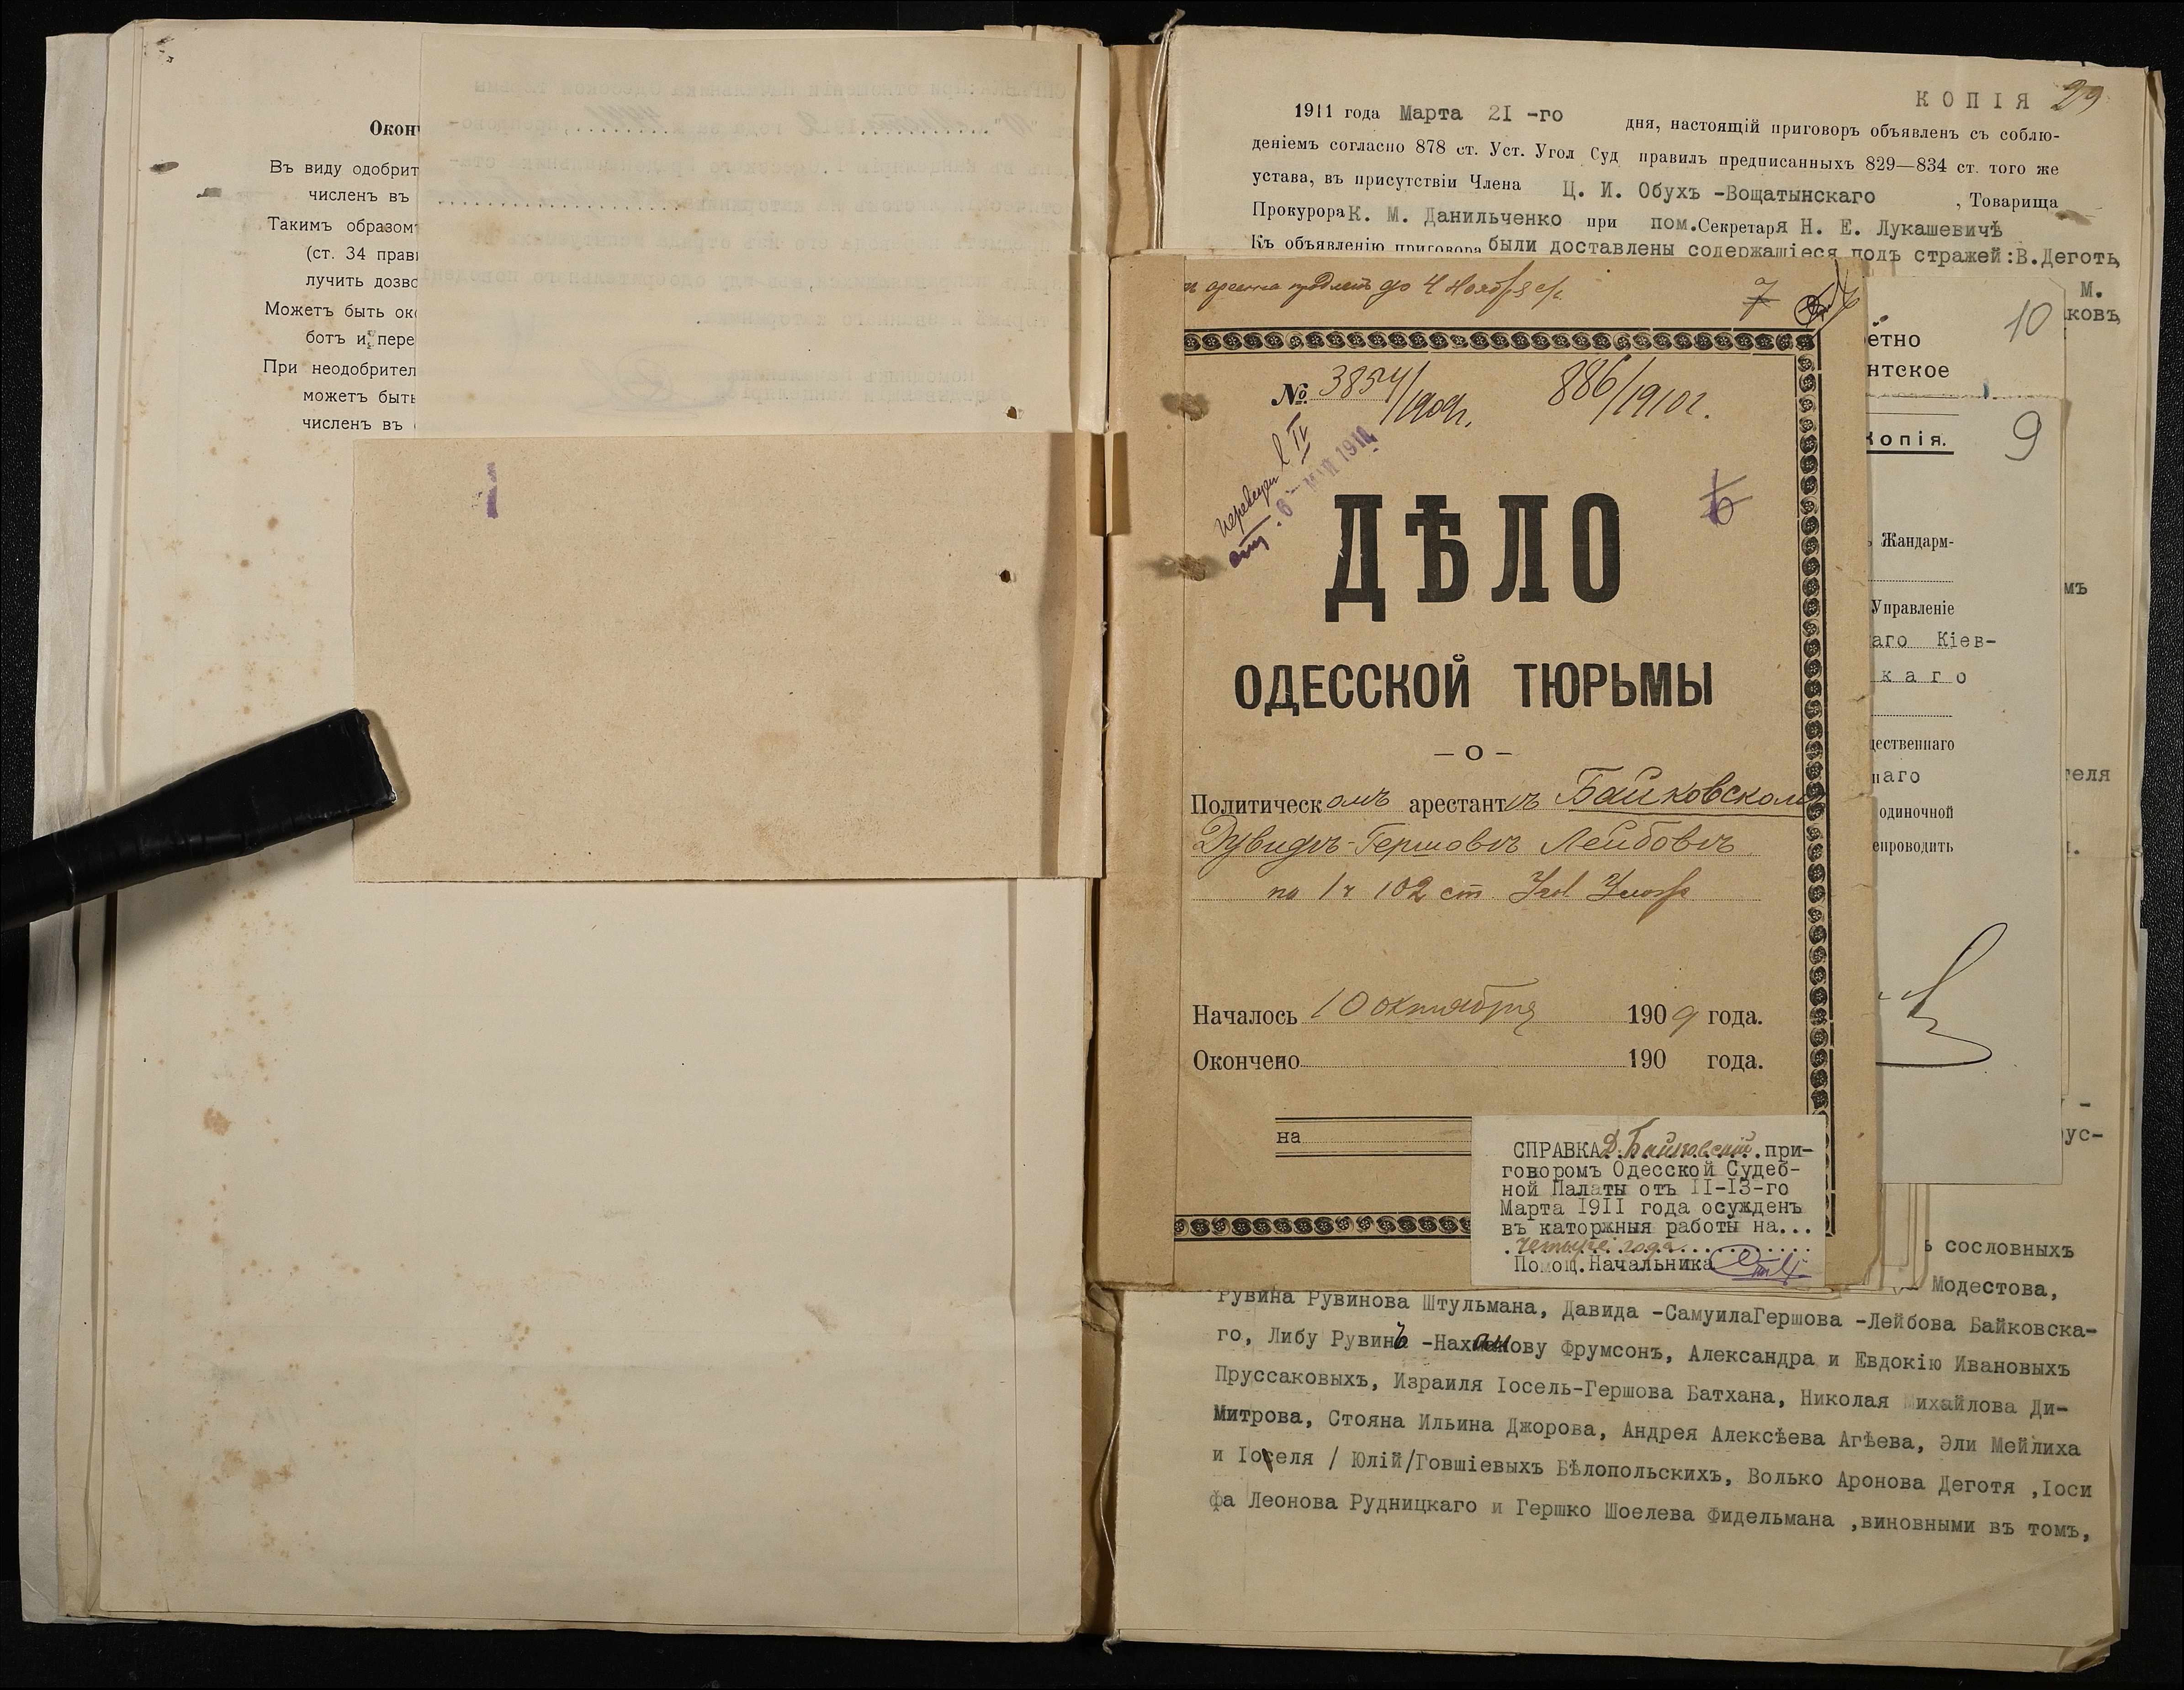 Окон
Въ виду одобрит
численъ въ
Такимъ образом
(ст. 34 прав
лучить дозво
Можетъ быть ок
ботъ и пере
При неодобрител
можетъ быть
численъ въ
КОПІЯ 29
1911 года Марта 21 -го дня, настоящій приговоръ объявленъ съ соблю-
деніемъ согласно 878 ст. Уст. Угол Суд правилъ предписанныхъ 829—834 ст. того же
устава, въ присутствіи Члена Ц. И. Обухъ -Вощатынскаго , Товарища
Прокурора К. М. Данильченко при пом.Секретаря Н. Е. Лукашевичѣ
Къ объявленію приговора были доставлены содержащіеся подъ стражей:В.Деготь,
М.
ковъ,
до 4 Ноября с/г. 7
№ 3854/1909г. 886/1910г.
6
6- МАЙ 191
ДѢЛО
ОДЕССКОЙ ТЮРЬМЫ
— о —
Политическомъ арестантѣ Байковскомъ
Дувидъ-Гершовѣ Лейбовѣ
по 1 ч 102 ст. Угол Улож
Началось 10 октября 1909 года.
Окончено 190 года.
на
СПРАВКА Д. Байковскій при-
говоромъ Одесской Судеб-
ной Палаты отъ II-I3-го
Марта I9II года осужденъ
въ каторжныя работы на...
четыре года
Помощ.Начальника
10
етно
нтское
Копія.
9
Жандарм-
Управленіе
аго Кіев-
каго
ественнаго
наго
одиночной
епроводить
мъ
теля
ус-
ь сословныхъ
Модестова,
Рувина Рувинова Штульмана, Давида -СамуилаГершова -Лейбова Байковска-
го, Либу Рувинъ -Нахманову Фрумсонъ, Александра и Евдокію Ивановыхъ
Пруссаковыхъ, Израиля Іосель-Гершова Батхана, Николая Михайлова Ди-
Митрова, Стояна Ильина Джорова, Андрея Алексѣева Агѣева, Эли Мейлиха
и Іоселя / Юлій/Говшіевыхъ Бѣлопольскихъ, Волько Аронова Деготя ,Іоси
фа Леонова Рудницкаго и Гершко Шоелева Фидельмана ,виновными въ томъ,